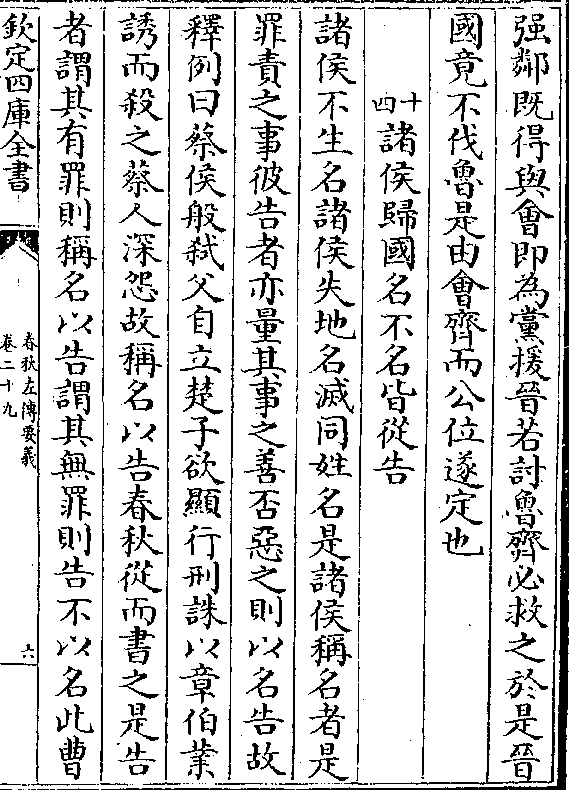 强鄰既得與會即為黨援晉若討魯齊必救之於是晉
國竟不伐魯是由會齊而公位遂定也
十四諸侯歸國名不名皆從告
諸侯不生名諸侯失地名滅同姓名是諸侯稱名者是
罪責之事彼告者亦量其事之善否惡之則以名告故
釋例曰蔡侯般弑父自立楚子欲顯行刑誅以章伯業
誘而殺之蔡人深怨故稱名以告春秋從而書之是告
者謂其有罪則稱名以告謂其無罪則告不以名此曹
欽定四庫全書
春秋左傳要義
卷二十九
六